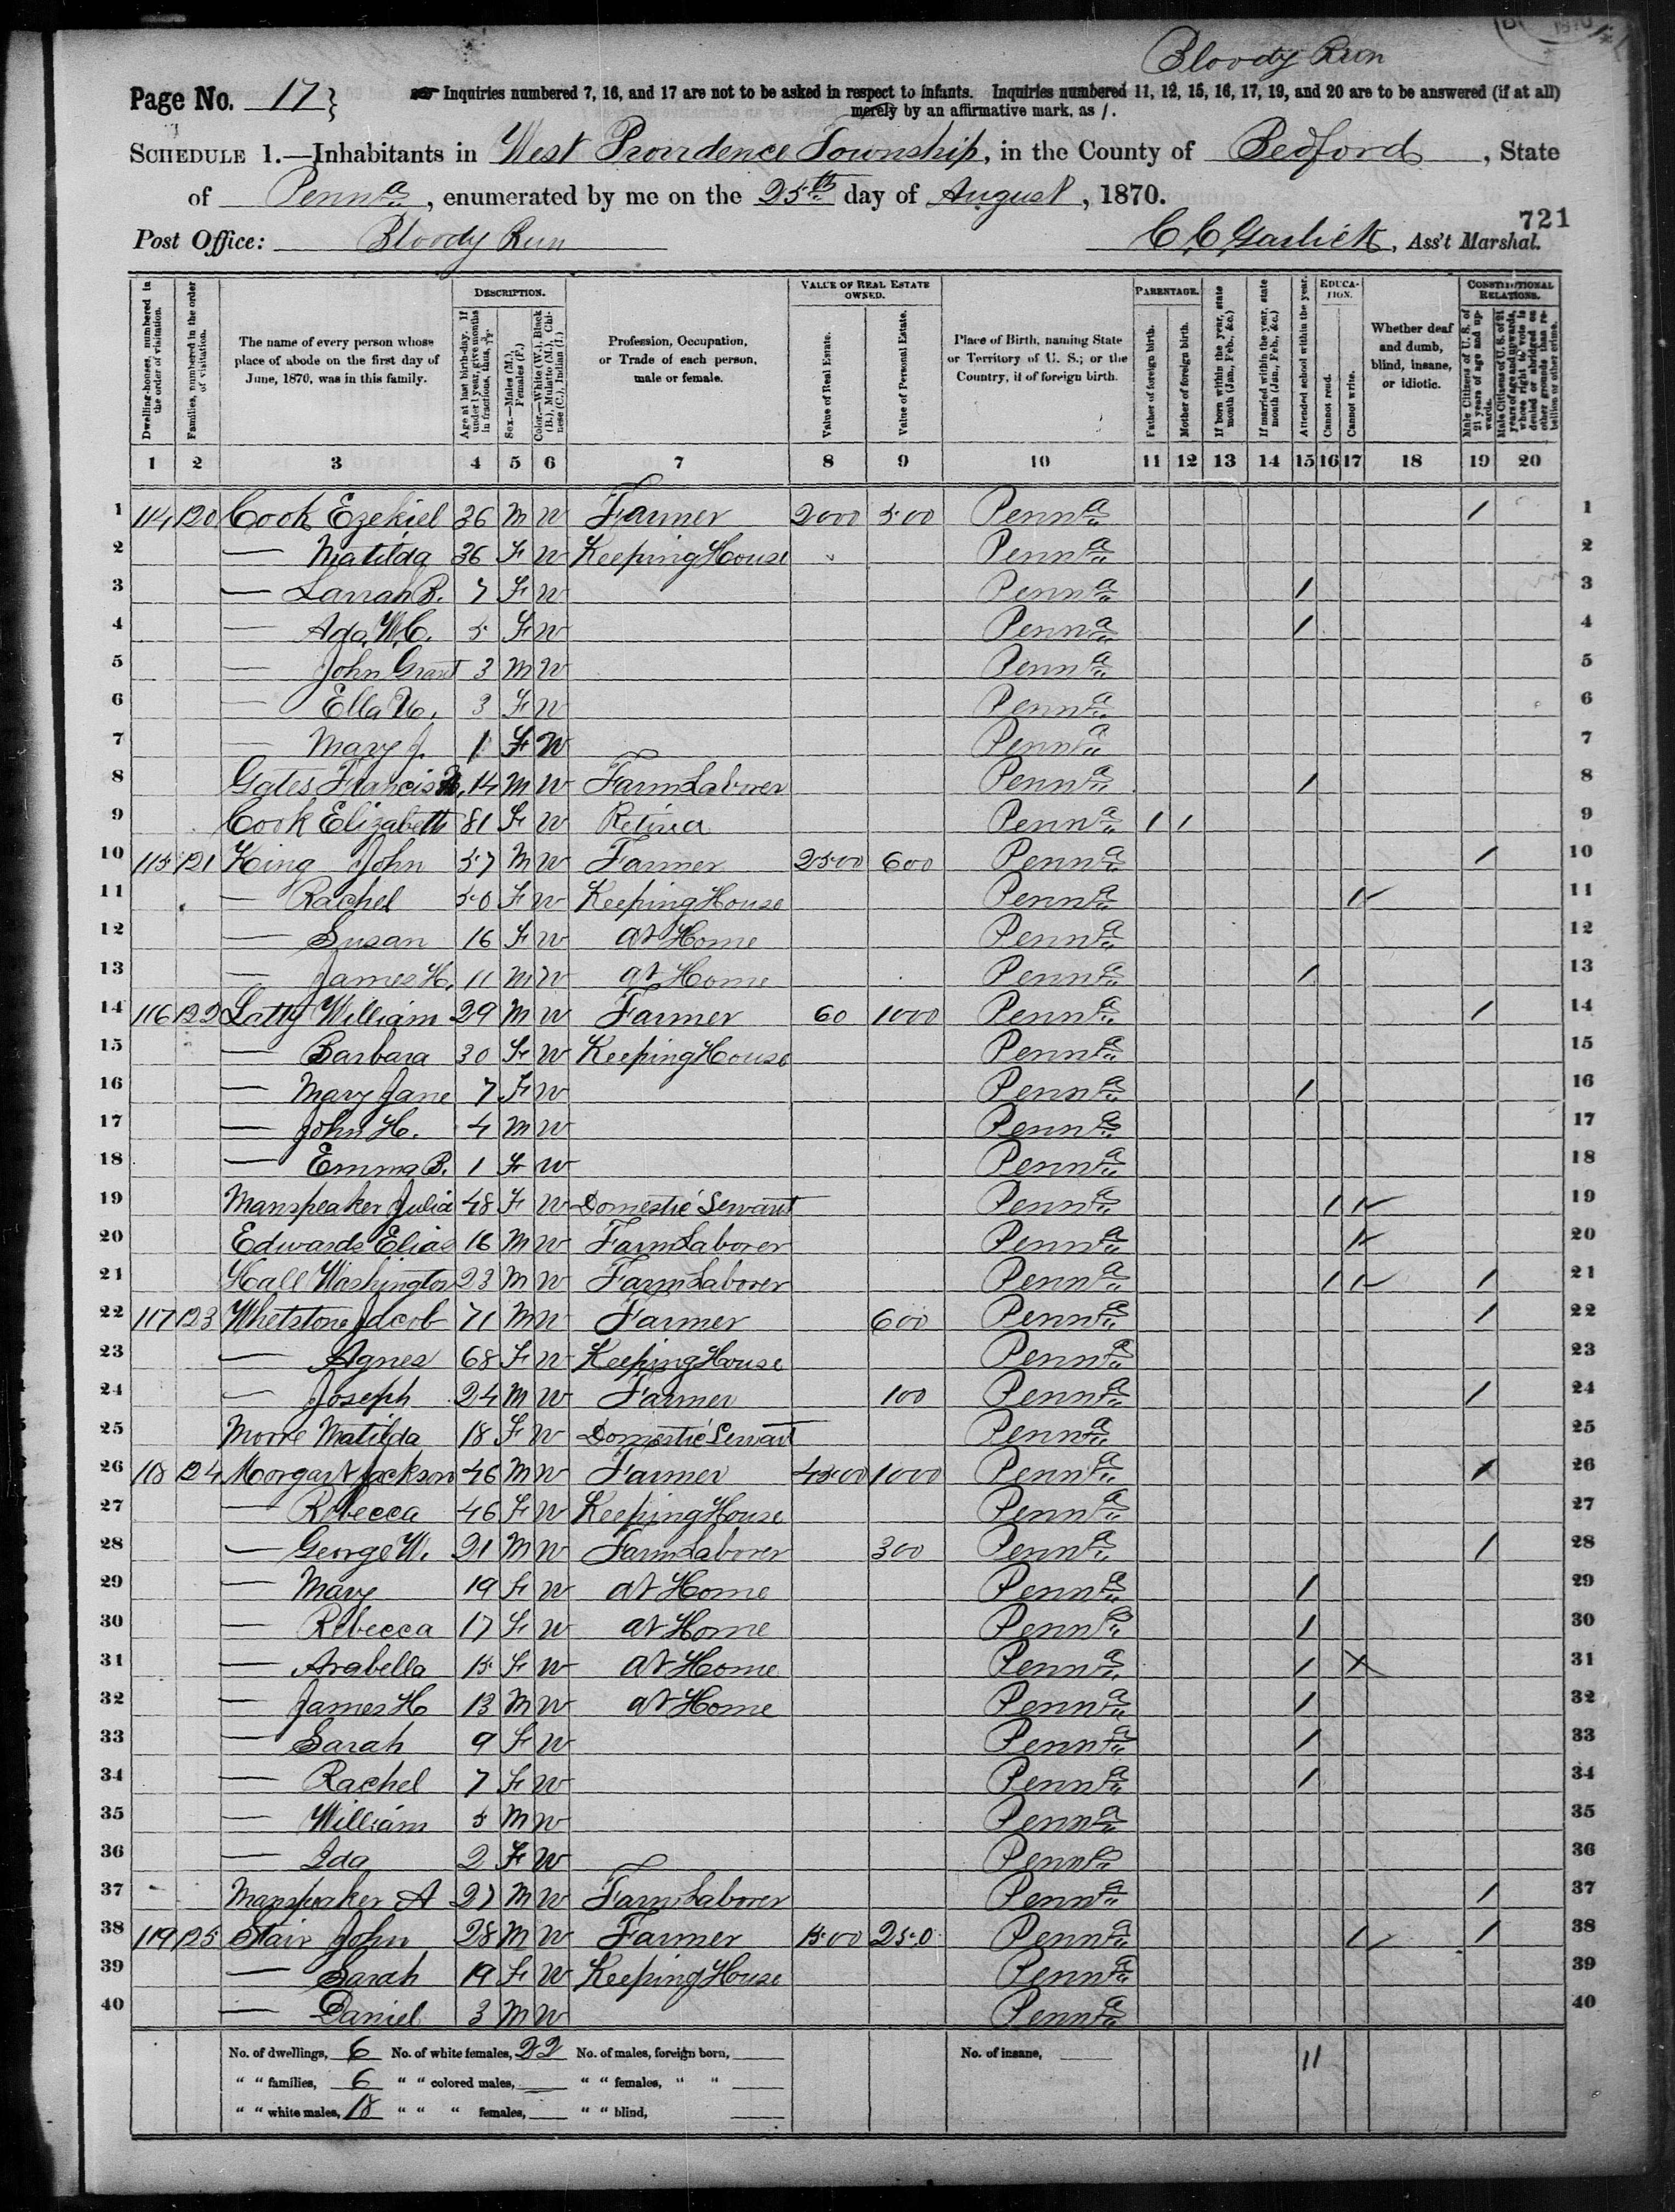 Bloody Run
Page No. 17 } Inquiries numbered 7, 16, and 17 are not to be asked in respect to infants. Inquiries numbered 11, 12, 15, 16, 17, 19, and 20 are to be answered (if at all)
merely by an affirmative mark, as /.
SCHEDULE 1.—Inhabitants in West Providence Township, in the County of Bedford, State
of Penna, enumerated by me on the 25th day of August, 1870.
721
Post Office: Bloody Run C C Garlick, Ass't Marshal.
Dwelling-houses, numbered in the order of visitation.
Families, numbered in the order of visitation.
The name of every person whose place of abode on the first day of June, 1870, was in this family.
DESCRIPTION.
Age at last birth-day. If under 1 year, give months in fractions, thus,
Sex.—Males (M.), Females (F.)
Color.—White (W.), Black (B.), Mulatto (M.), Chinese (C.), Indian (I.)
Profession, Occupation, or Trade of each person, male or female.
VALUE OF REAL ESTATE OWNED.
Value of Real Estate.
Value of Personal Estate.
Place of Birth, naming State or Territory of U. S.; or the Country, if of foreign birth.
PARENTAGE.
Father of foreign birth.
Mother of foreign birth.
If born within the year, state month (Jan., Feb., &c.)
If married within the year, state month (Jan., Feb., &c.)
Attended school within the year.
EDUCATION.
Cannot read.
Cannot write.
Whether deaf and dumb, blind, insane, or idiotic.
CONSTITUTIONAL RELATIONS.
Male Citizens of U. S. of 21 years of age and upwards.
Male Citizens of U. S. of 21 years of age and upwards, whose right to vote is denied or abridged on other grounds than rebellion or other crime.
1 2 3 4 5 6 7 8 9 10 11 12 13 14 15 16 17 18 19 20
1 114 120 Cook Ezekiel 36 M W Farmer 2000 500 Penna / 1
2 — Matilda 36 F W Keeping House Penna 2
3 — Sarrah B. 7 F W Penna / 3
4 — Ada W.C. 5 F W Penna / 4
5 — John Grant 3 M W Penna 5
6 — Ella 3 F W Penna 6
7 — Mary J. 1 F W Penna 7
8 Gates Francis 14 M W Farm Laborer Penna / 8
9 Cook Elizabeth 81 F W Penna / / 9
10 115 121 King John 57 M W Farmer 2500 600 Penna / 10
11 — Rachel 50 F W Keeping House Penna / 11
12 — Susan 16 F W at Home Penna 12
13 — James H. 11 M W at Home Penna / 13
14 116 122 Latty William 29 M W Farmer 60 1000 Penna / 14
15 — Barbara 30 F W Keeping House Penna 15
16 — Mary Jane 7 F W Penna / 16
17 — John H. 4 M W Penna 17
18 — Emma B. 1 F W Penna 18
19 Manspeaker Julia 48 F W Domestic Servant Penna / / 19
20 Edwards Elias 16 M W Farm Laborer Penna / 20
21 Hall Washington 23 M W Farm Laborer Penna / / / 21
22 117 123 Whetstone Jacob 71 M W Farmer 600 Penna / 22
23 — Agnes 68 F W Keeping House Penna 23
24 — Joseph 24 M W Farmer 100 Penna / 24
25 Moore Matilda 18 F W Domestic Servant Penna 25
26 118 124 Morgart Jackson 46 M W Farmer 4500 1000 Penna / 26
27 — Rebecca 46 F W Keeping House Penna 27
28 — George W. 21 M W Farm Laborer 300 Penna / 28
29 — Mary 19 F W at Home Penna / 29
30 — Rebecca 17 F W at Home Penna / 30
31 — Arabella 15 F W at Home Penna / X 31
32 — James H 13 M W at Home Penna / 32
33 — Sarah 9 F W Penna / 33
34 — Rachel 7 F W Penna / 34
35 — William 5 M W Penna 35
36 — Ida 2 F W Penna 36
37 Manspeaker A 27 M W Farm Laborer Penna / 37
38 119 125 Stair John 28 M W Farmer 1500 250 Penna / / 38
39 — Sarah 19 F W Keeping House Penna 39
40 — Daniel 3 M W Penna 40
No. of dwellings, 6 No. of white females, 22 No. of males, foreign born, No. of insane, 11
" " families, 6 " " colored males, " " females, " "
" " white males, 18 " " " females, " " blind,